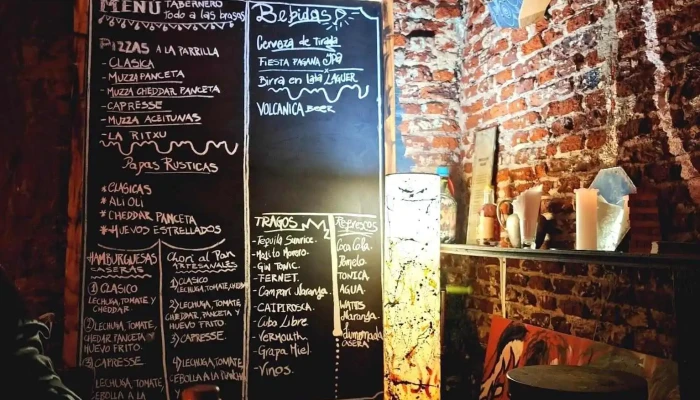 MENÚ TABERNERO
Todo a las brasas
PIZZAS A LA PARRILLA
- CLASICA
- MUZZA PANCETA
- MUZZA CHEDDAR PANCETA
- CAPRESSE
- MUZZA ACEITUNAS
- LA RITXU
PAPAS RUSTICAS
* CLASICAS
* ALI OLI
* CHEDDAR PANCETA
* HUEVOS ESTRELLADOS
HAMBURGUESAS
CASERAS
1) CLASICO
LECHUGA, TOMATE Y
CHEDDAR.
2) LECHUGA, TOMATE,
CHEDDAR PANCETA Y
HUEVO FRITO.
3) CAPRESSE
LECHUGA, TOMATE
Chori al Pan
ARTESANALES
1) CLASICO
LECHUGA, TOMATE,
2) LECHUGA, TOMATE
CHEDDAR, PANCETA Y
HUEVO FRITO.
3) CAPRESSE.
4) LECHUGA, TOMATE
CEBOLLA A LA PLANCHA
Bebidas
Cerveza de Tirada
FIESTA PAGANA IPA
Birra en lata LAGUER
VOLCANICA BEER
TRAGOS
- Tequila Sunrice.
- Mojito Morado.
- Gin Tonic.
- FERNET.
- Campari Naranja.
- CAIPIROSCA.
- Cuba Libre
- VERMOUTH.
- Grapa Miel.
- Vinos.
Refrescos
Coca Cola.
Pomelo.
TONICA.
AGUA.
WATTS
Naranja.
Limonada
CASERA